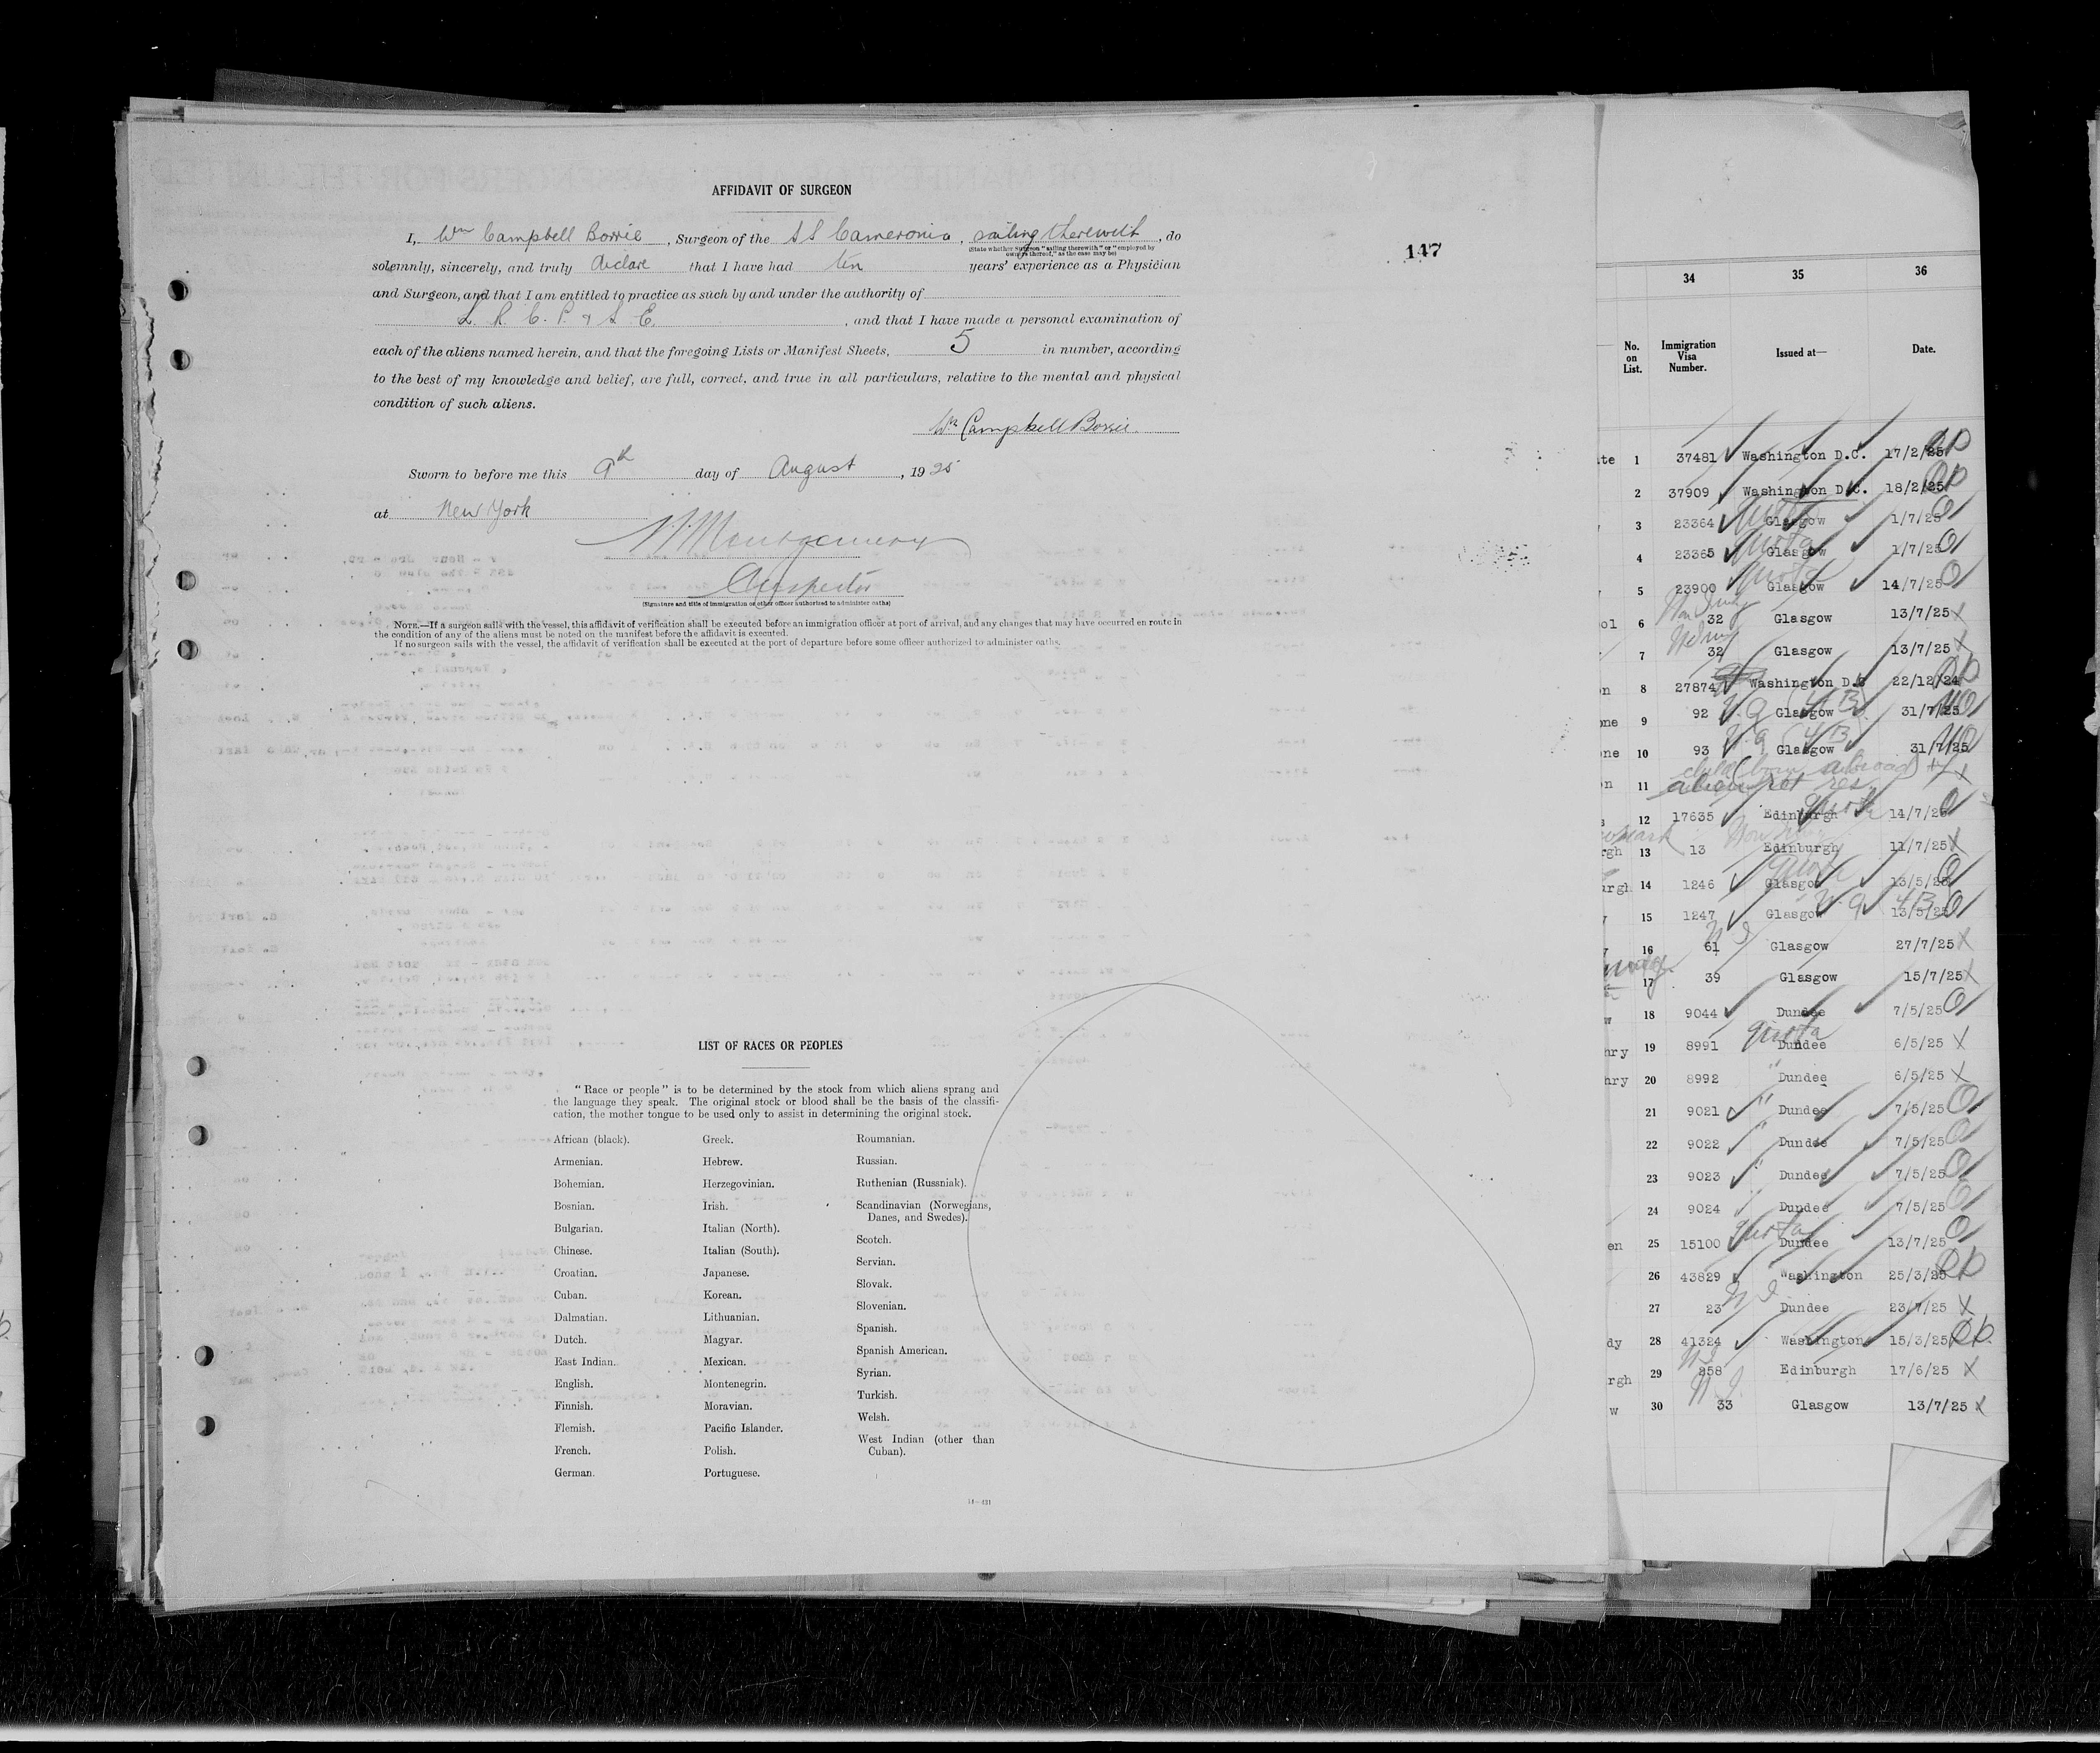 AFFIDAVIT OF SURGEON
I, Wm Campbell Borrie, Surgeon of the S S Cameronia, sailing therewith, do
(State whether surgeon "sailing therewith" or "employed by
owners thereof," as the case may be)
solemnly, sincerely, and truly declare that I have had ten years' experience as a Physician
and Surgeon, and that I am entitled to practice as such by and under the authority of
L. R. C. P. & S. E., and that I have made a personal examination of
each of the aliens named herein, and that the foregoing Lists or Manifest Sheets, 5 in number, according
to the best of my knowledge and belief, are full, correct, and true in all particulars, relative to the mental and physical
condition of such aliens.
Wm Campbell Borrie.
Sworn to before me this 9th day of August, 1925
at New York
Montgomery
Inspector
(Signature and title of immigration or other officer authorized to administer oaths)
NOTE.—If a surgeon sails with the vessel, this affidavit of verification shall be executed before an immigration officer at port of arrival, and any changes that may have occurred en route in
the condition of any of the aliens must be noted on the manifest before the affidavit is executed.
If no surgeon sails with the vessel, the affidavit of verification shall be executed at the port of departure before some officer authorized to administer oaths.
147
LIST OF RACES OR PEOPLES
"Race or people" is to be determined by the stock from which aliens sprang and
the language they speak. The original stock or blood shall be the basis of the classifi-
cation, the mother tongue to be used only to assist in determining the original stock.
African (black).
Armenian.
Bohemian.
Bosnian.
Bulgarian.
Chinese.
Croatian.
Cuban.
Dalmatian.
Dutch.
East Indian.
English.
Finnish.
Flemish.
French.
German.
Greek.
Hebrew.
Herzegovinian.
Irish.
Italian (North).
Italian (South).
Japanese.
Korean.
Lithuanian.
Magyar.
Mexican.
Montenegrin.
Moravian.
Pacific Islander.
Polish.
Portuguese.
Roumanian.
Russian.
Ruthenian (Russniak).
Scandinavian (Norwegians,
Danes, and Swedes).
Scotch.
Servian.
Slovak.
Slovenian.
Spanish.
Spanish American.
Syrian.
Turkish.
Welsh.
West Indian (other than
Cuban).
14—431
34 35 36
No. on List. Immigration Visa Number. Issued at— Date.
1 37481 Washington D.C. 17/2/25
2 37909 Washington D.C. 18/2/25
3 23364 quota Glasgow 1/7/25
4 23365 quota Glasgow 1/7/25
5 23900 quota Glasgow 14/7/25
6 32 Glasgow 13/7/25 X
7 32 Glasgow 13/7/25 X
8 27874 Washington D.C 22/12/24
9 92 Glasgow 31/7/25
10 93 Glasgow 31/7/25
child (born abroad)
11 alien ret res
12 17635 Edinburgh quota 14/7/25
13 13 Edinburgh 11/7/25 X
14 1246 quota Glasgow 13/5/25
15 1247 Glasgow 13/5/25
16 61 Glasgow 27/7/25 X
17 39 Glasgow 15/7/25 X
18 9044 Dundee 7/5/25
19 8991 quota Dundee 6/5/25 X
20 8992 " Dundee 6/5/25 X
21 9021 " Dundee 7/5/25
22 9022 " Dundee 7/5/25
23 9023 " Dundee 7/5/25
24 9024 Dundee 7/5/25
25 15100 quota Dundee 13/7/25
26 43829 Washington 25/3/25
27 23 Dundee 23/7/25 X
28 41324 Washington 15/3/25
29 858 Edinburgh 17/6/25 X
30 33 Glasgow 13/7/25 X